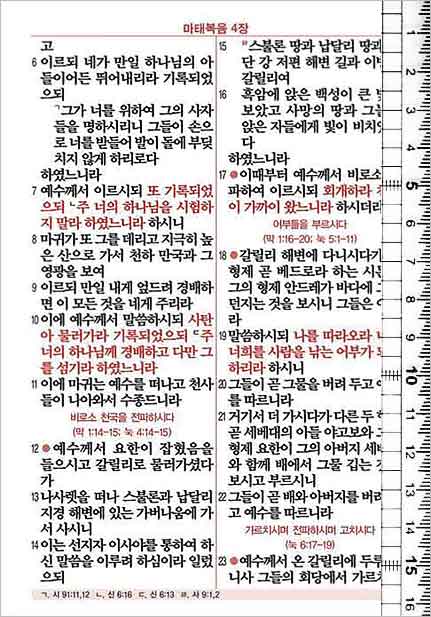 마태복음 4장
고
6 이르되 네가 만일 하나님의 아
들이어든 뛰어내리라 기록되었
으되
ㄱ그가 너를 위하여 그의 사자
들을 명하시리니 그들이 손으
로 너를 받들어 발이 돌에 부딪
치지 않게 하리로다
하였느니라
7 예수께서 이르시되 또 기록되었
으되 ㄴ주 너의 하나님을 시험하
지 말라 하였느니라 하시니
8 마귀가 또 그를 데리고 지극히 높
은 산으로 가서 천하 만국과 그
영광을 보여
9 이르되 만일 내게 엎드려 경배하
면 이 모든 것을 네게 주리라
10 이에 예수께서 말씀하시되 사탄
아 물러가라 기록되었으되 ㄷ주
너의 하나님께 경배하고 다만 그
를 섬기라 하였느니라
11 이에 마귀는 예수를 떠나고 천사
들이 나아와서 수종드니라
비로소 천국을 전파하시다
(막 1:14-15; 눅 4:14-15)
12 예수께서 요한이 잡혔음을
들으시고 갈릴리로 물러가셨다
가
13 나사렛을 떠나 스불론과 납달리
지경 해변에 있는 가버나움에 가
서 사시니
14 이는 선지자 이사야를 통하여 하
신 말씀을 이루려 하심이라 일렀
으되
15 ㄹ스불론 땅과 납달리 땅과
단 강 저편 해변 길과 이방
갈릴리여
16 흑암에 앉은 백성이 큰
보았고 사망의 땅과 그늘
앉은 자들에게 빛이 비치었
다
하였느니라
17 이때부터 예수께서 비로소
파하여 이르시되 회개하라
이 가까이 왔느니라 하시더라
어부들을 부르시다
(막 1:16-20; 눅 5:1-11)
18 갈릴리 해변에 다니시다가
형제 곧 베드로라 하는 시몬
그의 형제 안드레가 바다에
던지는 것을 보시니 그들은
라
19 말씀하시되 나를 따라오라
너희를 사람을 낚는 어부가
하리라 하시니
20 그들이 곧 그물을 버려 두고
를 따르니라
21 거기서 더 가시다가 다른 두
곧 세베대의 아들 야고보와
형제 요한이 그의 아버지 세베
와 함께 배에서 그물 깁는
보시고 부르시니
22 그들이 곧 배와 아버지를 버려
고 예수를 따르니라
가르치시며 전파하시며 고치시다
(눅 6:17-19)
23 예수께서 온 갈릴리에 두루
니사 그들의 회당에서 가르치
ㄱ. 시 91:11,12 ㄴ. 신 6:16 ㄷ. 신 6:13 ㄹ. 사 9:1,2
1
2
3
4
5
6
7
8
9
10
11
12
13
14
15
16